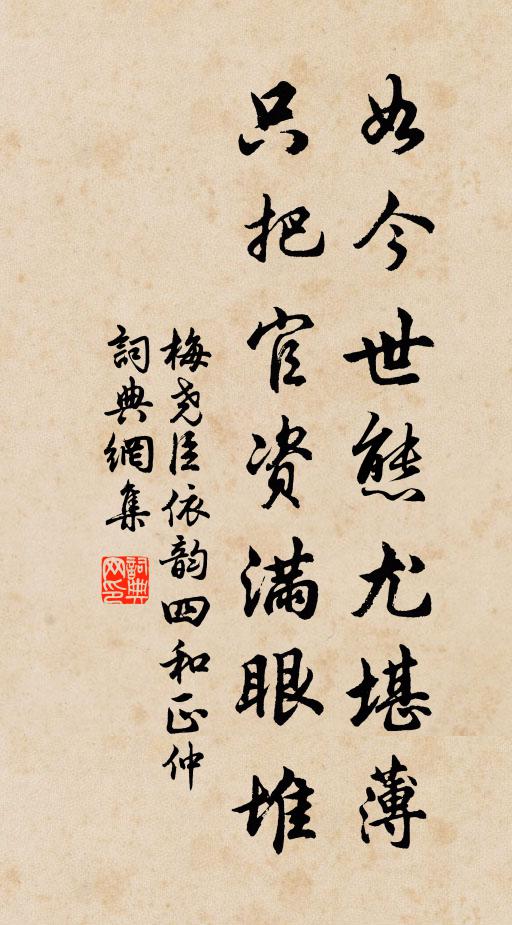 如今世態尤堪薄
只把官资滿眼堆
梅尧臣依韵四和正仲
詞典網集
詞典网印